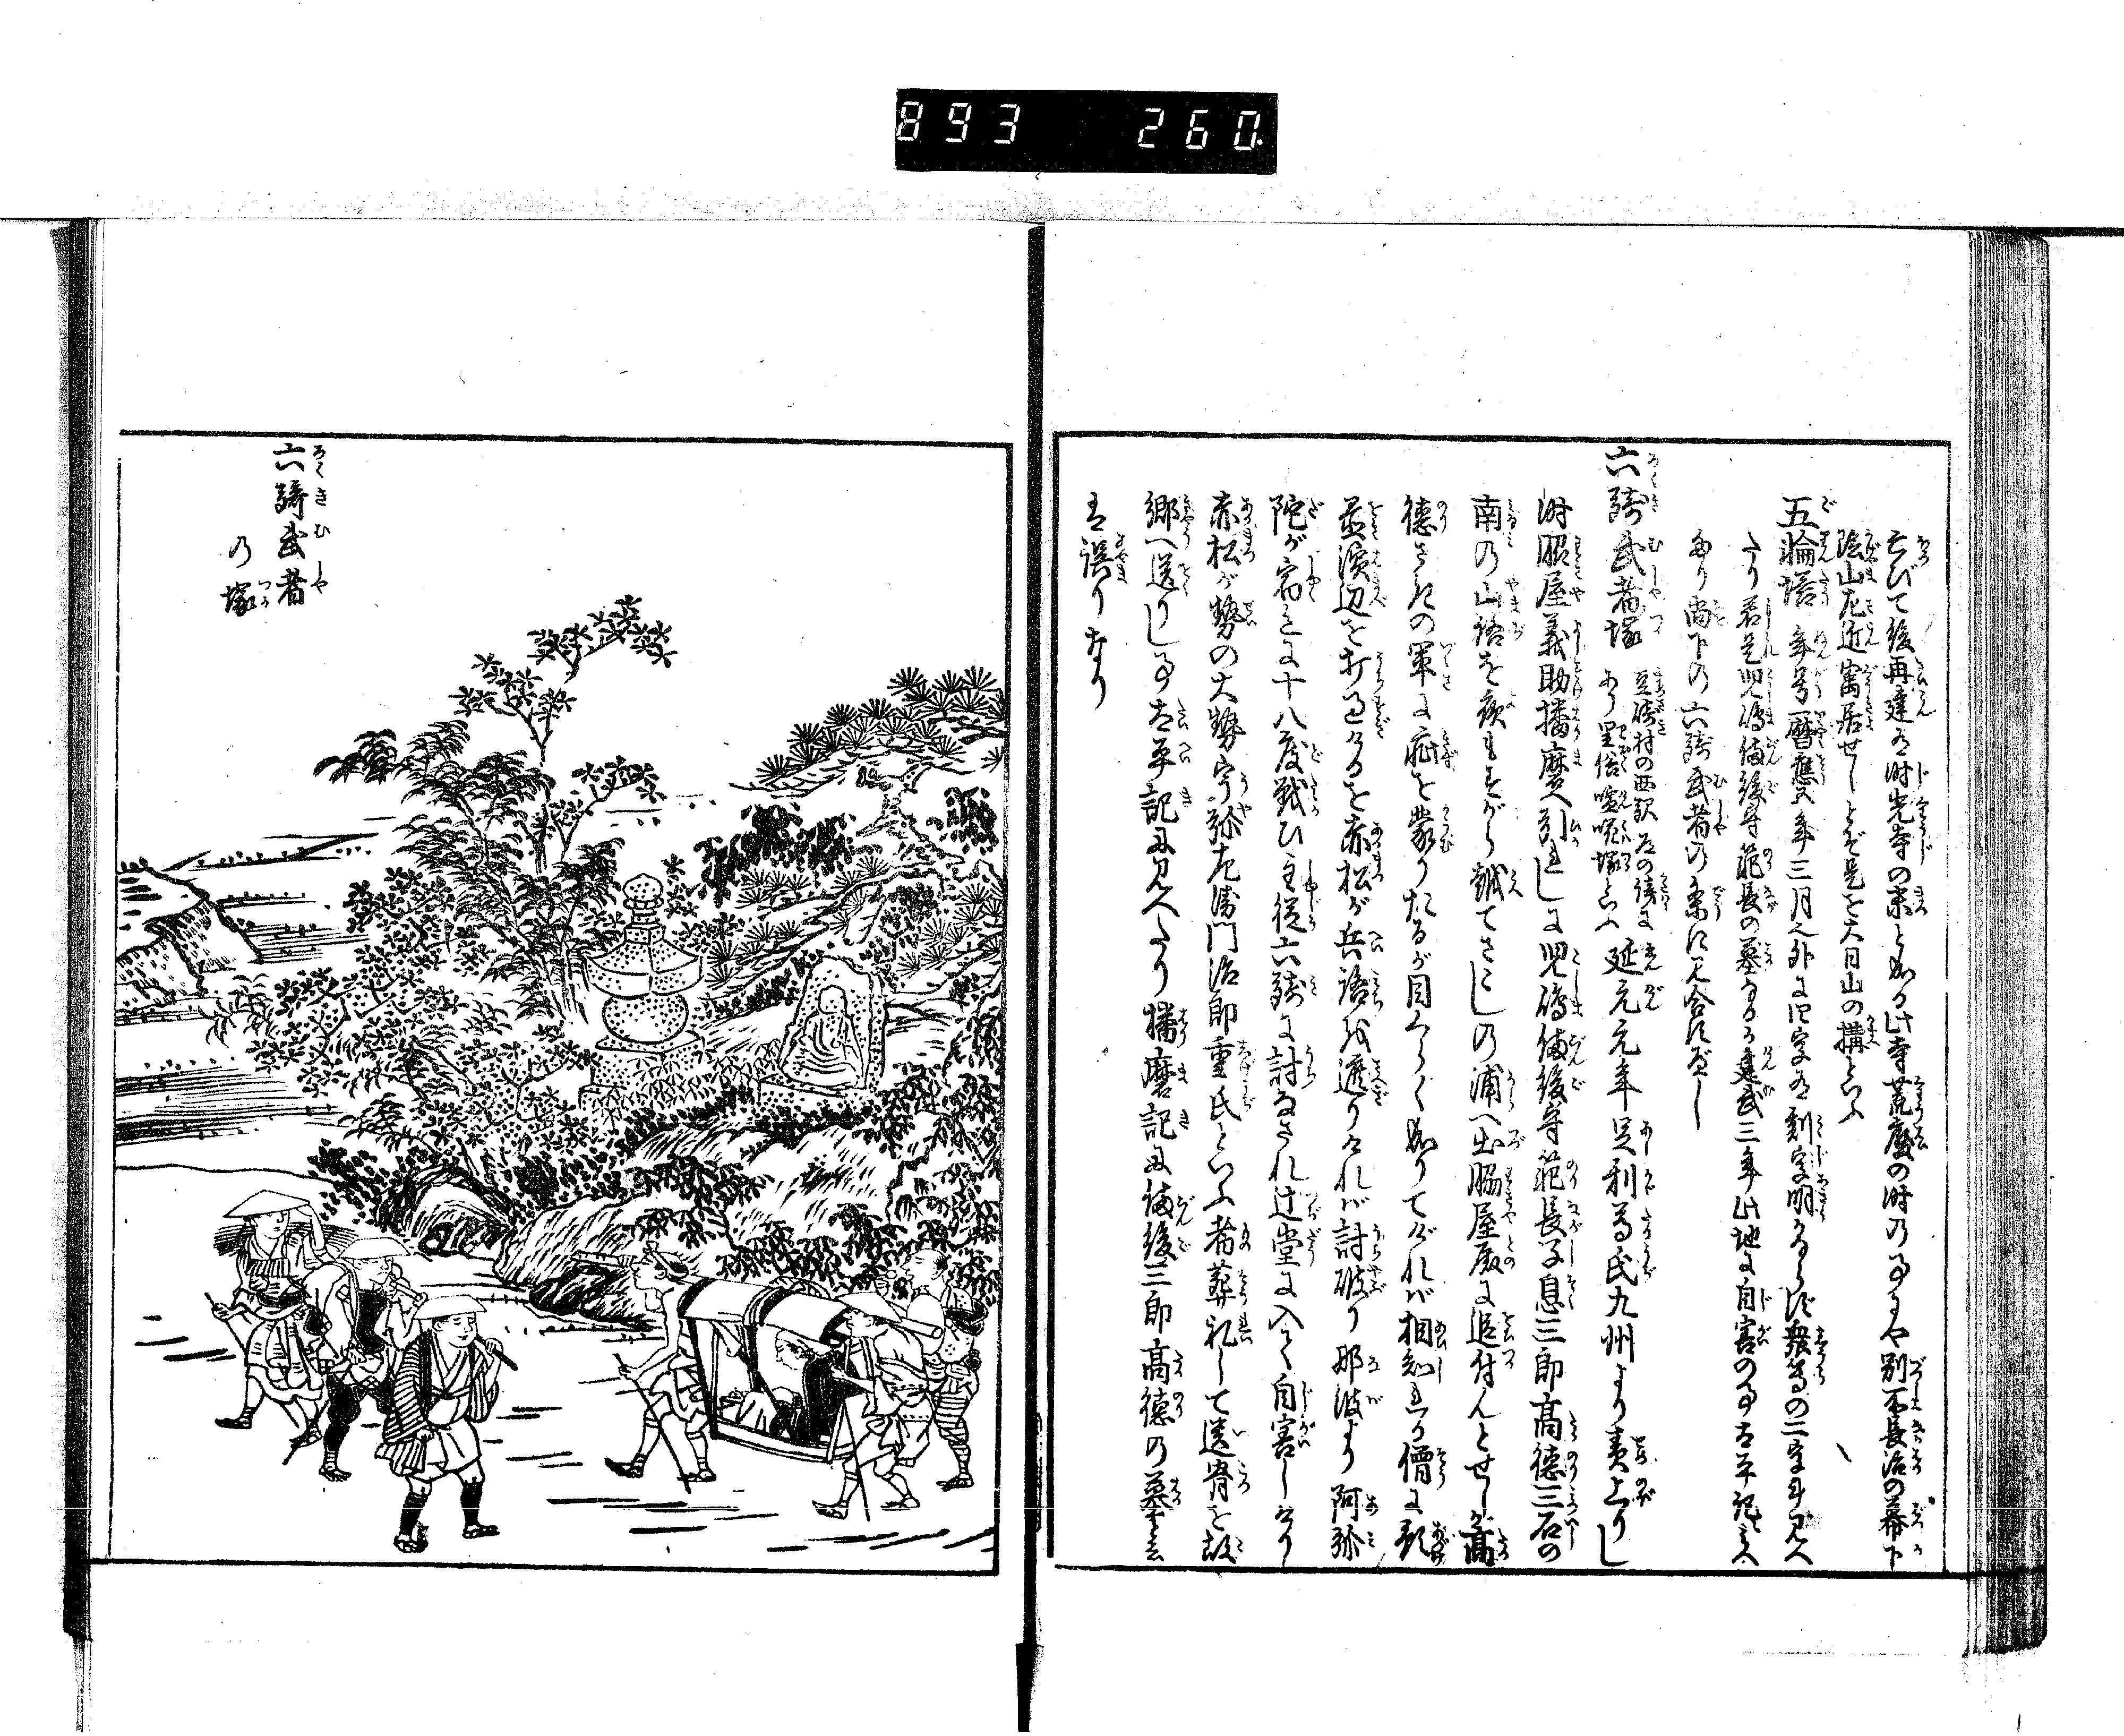 893 260
亡びて後再建の時光寺の末と成る此寺荒廃の時の事にや別所長治の幕下
陰山左近寓居せしとぞ是を大日山の構といふ
五輪塔 年号暦應 年三月之外に 字 刻字明ならず衆等の二字耳見へ
たり若是児嶋備後守範長の墓なるか建武三年此地に自害の事太平記に見へ
たり尚下の六騎武者の条に見合すべし
六騎武者塚 豆崎村の西 左の傍にあり里俗 塚といふ 延元元年足利尊氏九州より責上りし
時脇屋義助播磨へ引れしに児嶋備後守範長子息三郎高徳三石の
南の山路を夜もすがら越てさこしの浦へ出脇屋殿に追付んとせしが高
徳さきの軍に疵を蒙りたるが目くらく成りてければ相知れる僧に預
置濱辺を打通けるを赤松が兵路を遮りければ討破り那波より阿弥
陀が宿迄に十八度戦ひ主従六騎に討なされ辻堂に入て自害しけり
赤松が勢の大勢宇弥左衛門治郎重氏といふ者葬礼して遺骨を故
郷へ送りし事太平記に見へたり播磨記に備後三郎高徳の墓と云
は誤りなり
六騎武者
の塚